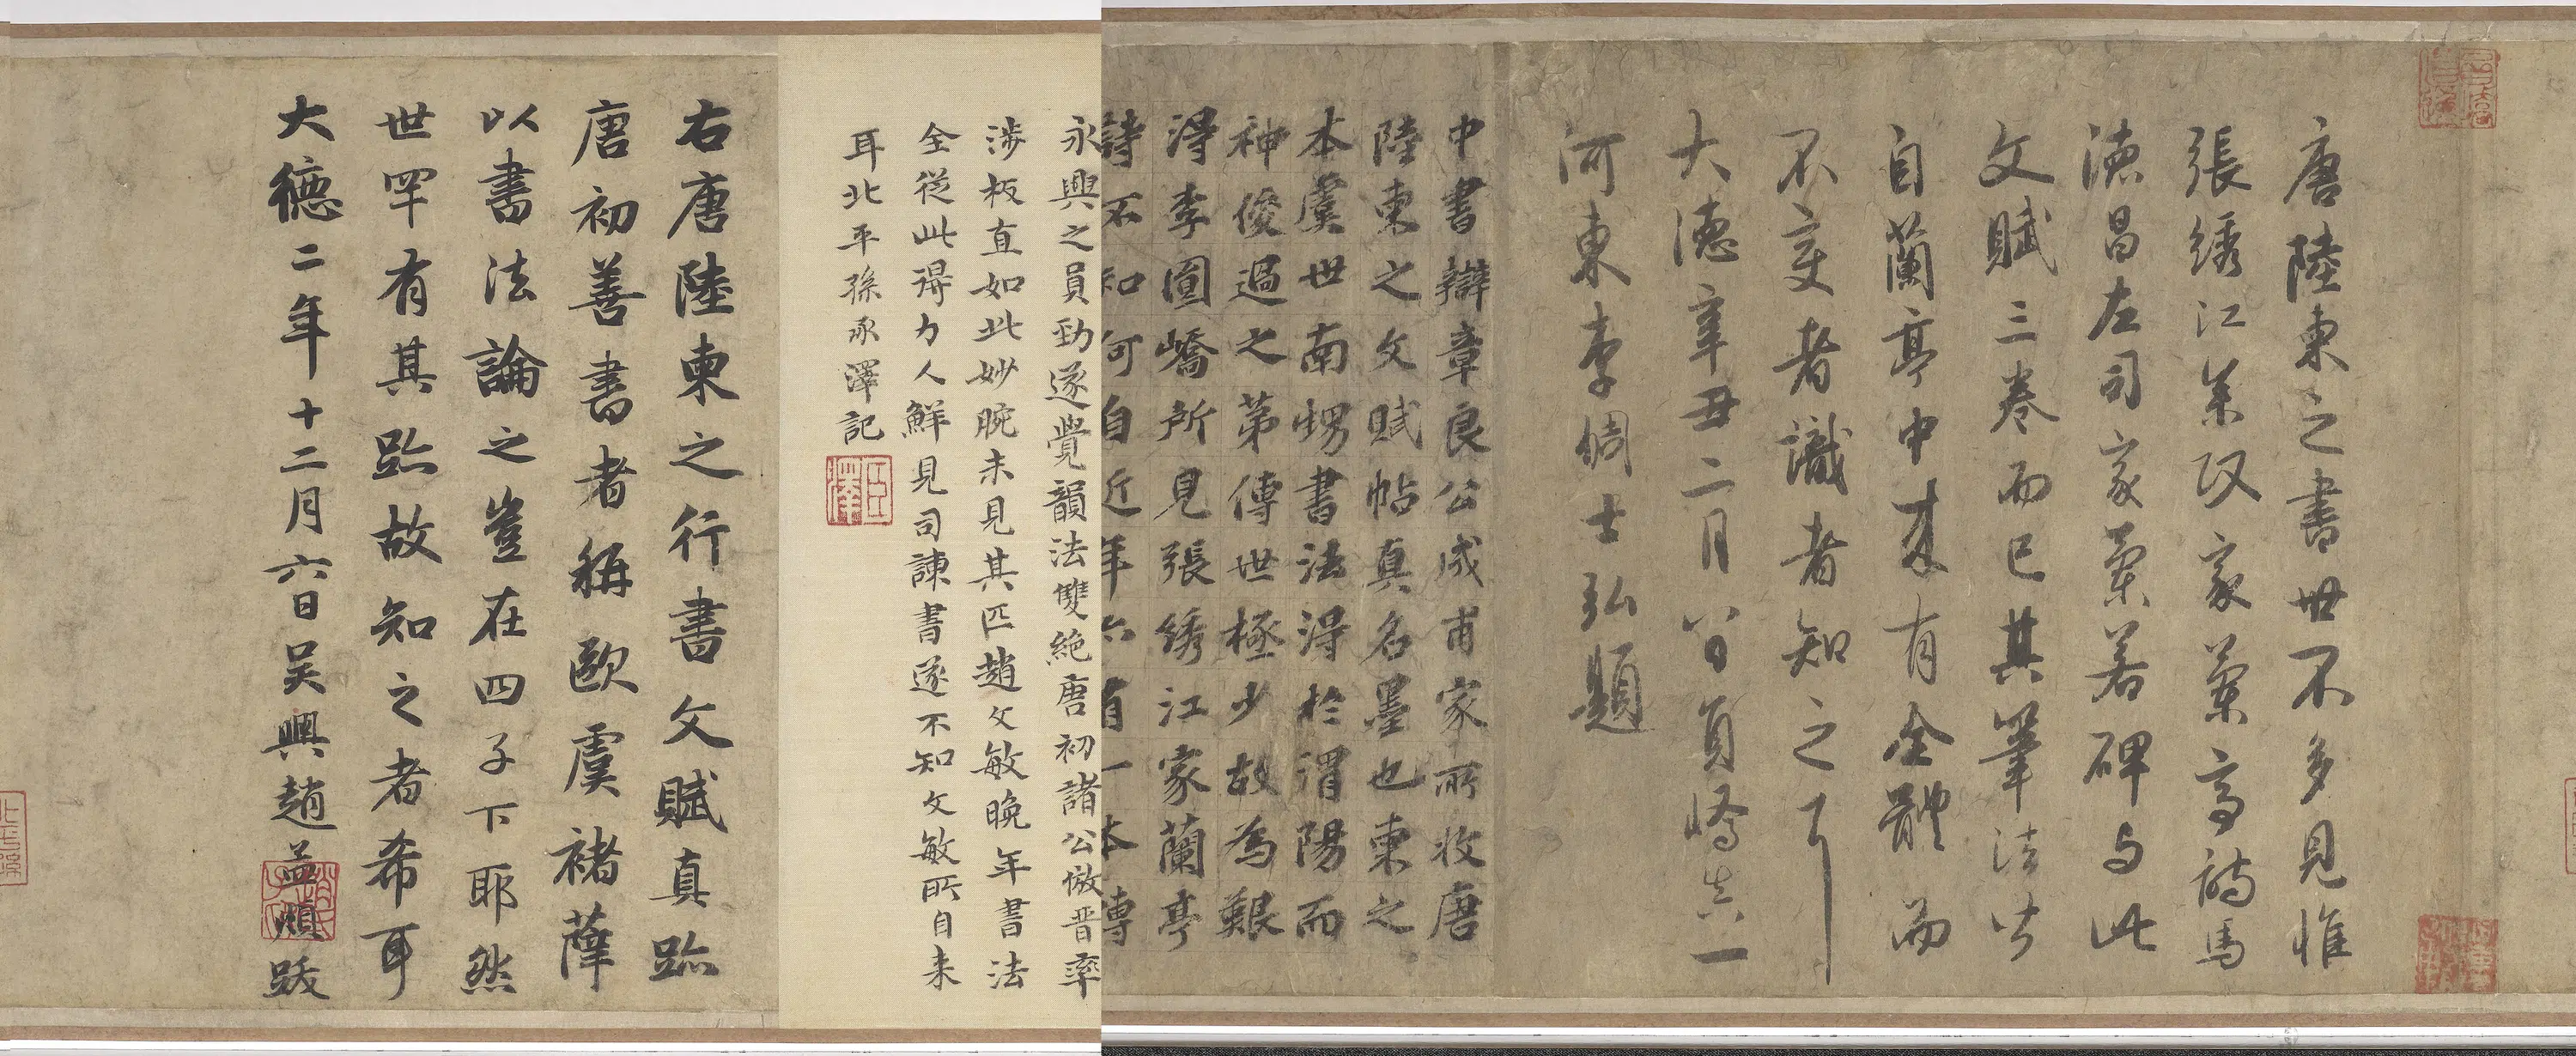 唐陸柬之書世不多見惟
張綉江叅议家蘭亭詩馬
徳昌左司家蘭若碑与此
文賦三卷而已其筆法皆
自蘭亭中来有全體而
不变者識者知之
大徳辛丑二月八日員嶠真一
河東李倜士弘題
中書辯章良公成甫家所收唐
陸柬之文賦帖真名墨也柬之
本虞世南甥書法得於渭陽而
神俊過之苐傳世極少故為艱
得李員嶠所見張綉江家蘭亭
詩不知何自近年亦有一本傳
永興之員勁遂覺韻法雙絶唐初諸公倣晉率
涉板直如此妙腕未見其匹趙文敏晚年書法
全從此得力人鮮見司諫書遂不知文敏所自来
耳北平孫承澤記
右唐陸柬之行書文賦真跡
唐初善書者稱歐虞褚薛
以書法論之豈在四子下耶然
世罕有其跡故知之者希耳
大德二年十二月六日吳興趙孟頫跋